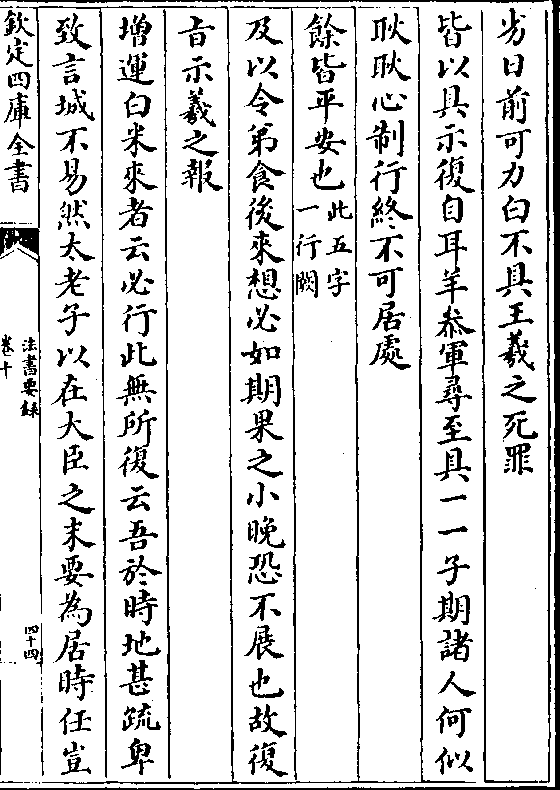 劣日前可力白不具王羲之死罪
皆以具示復自耳羊叅軍尋至具一一子期諸人何似
耿耿心制行終不可居處
餘皆平安也此五字一行闕
及以令弟食後來想必如期果之小晚恐不展也故復
旨示羲之報
增運白米來者云必行此無所復云吾於時地甚疏卑
致言城不易然太老子以在大臣之末要為居時任豈
欽定四庫全書
法書要録
卷十
四十四